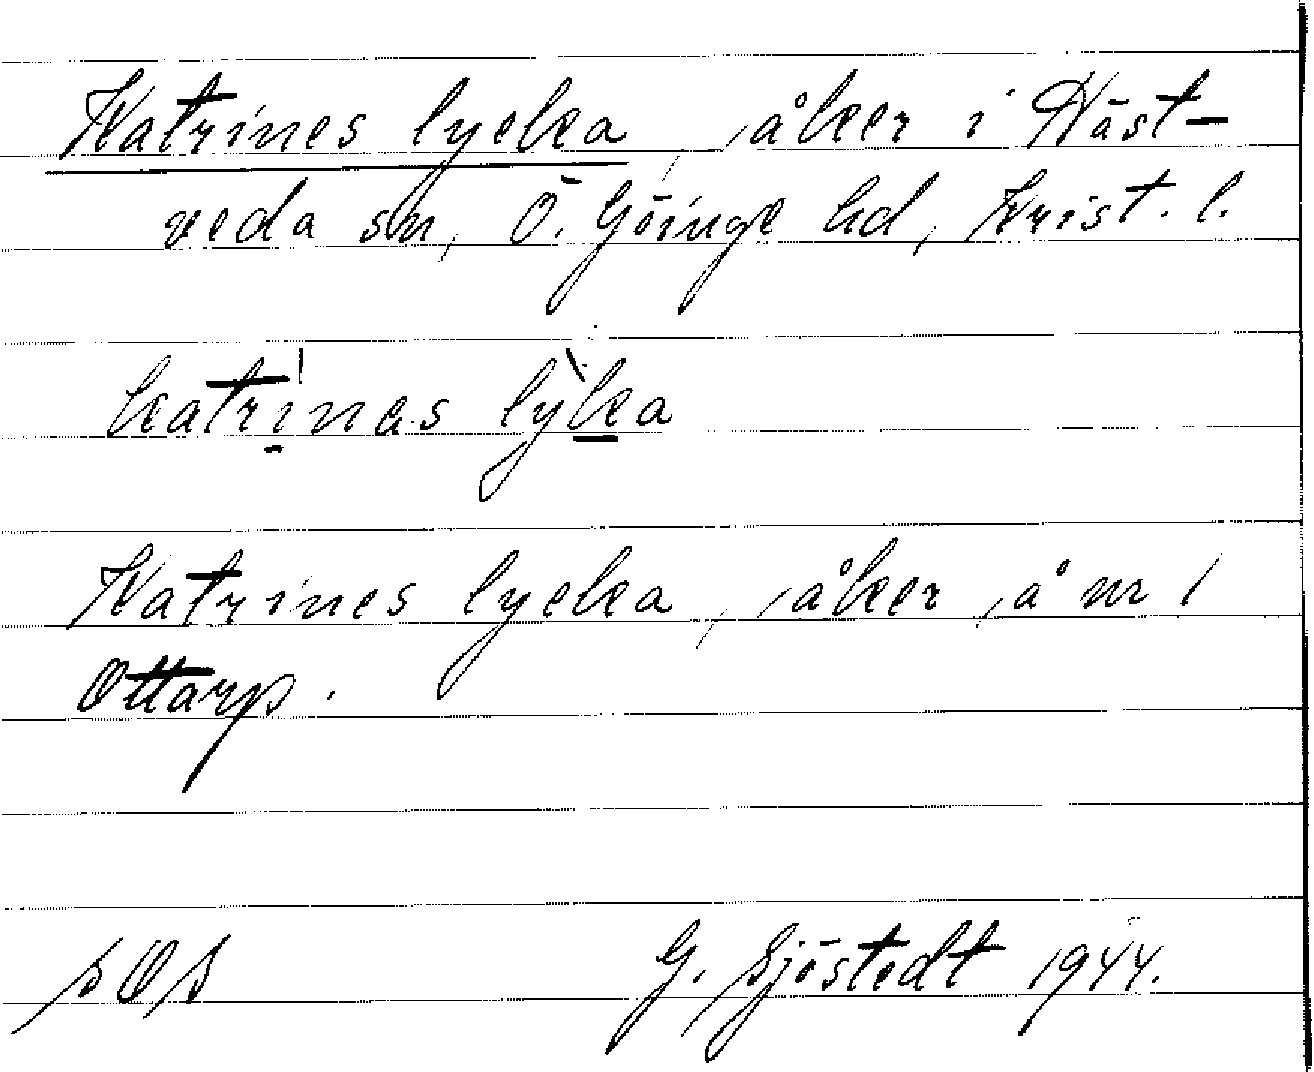 Katrines lycka, åker i Häst-
veda sn, Ö. Göinge hd, Krist. l.
katri̱nas lyḵa
Katrines lycka, åker å nr 1
Ottarp.
G. Sjöstedt 1944.